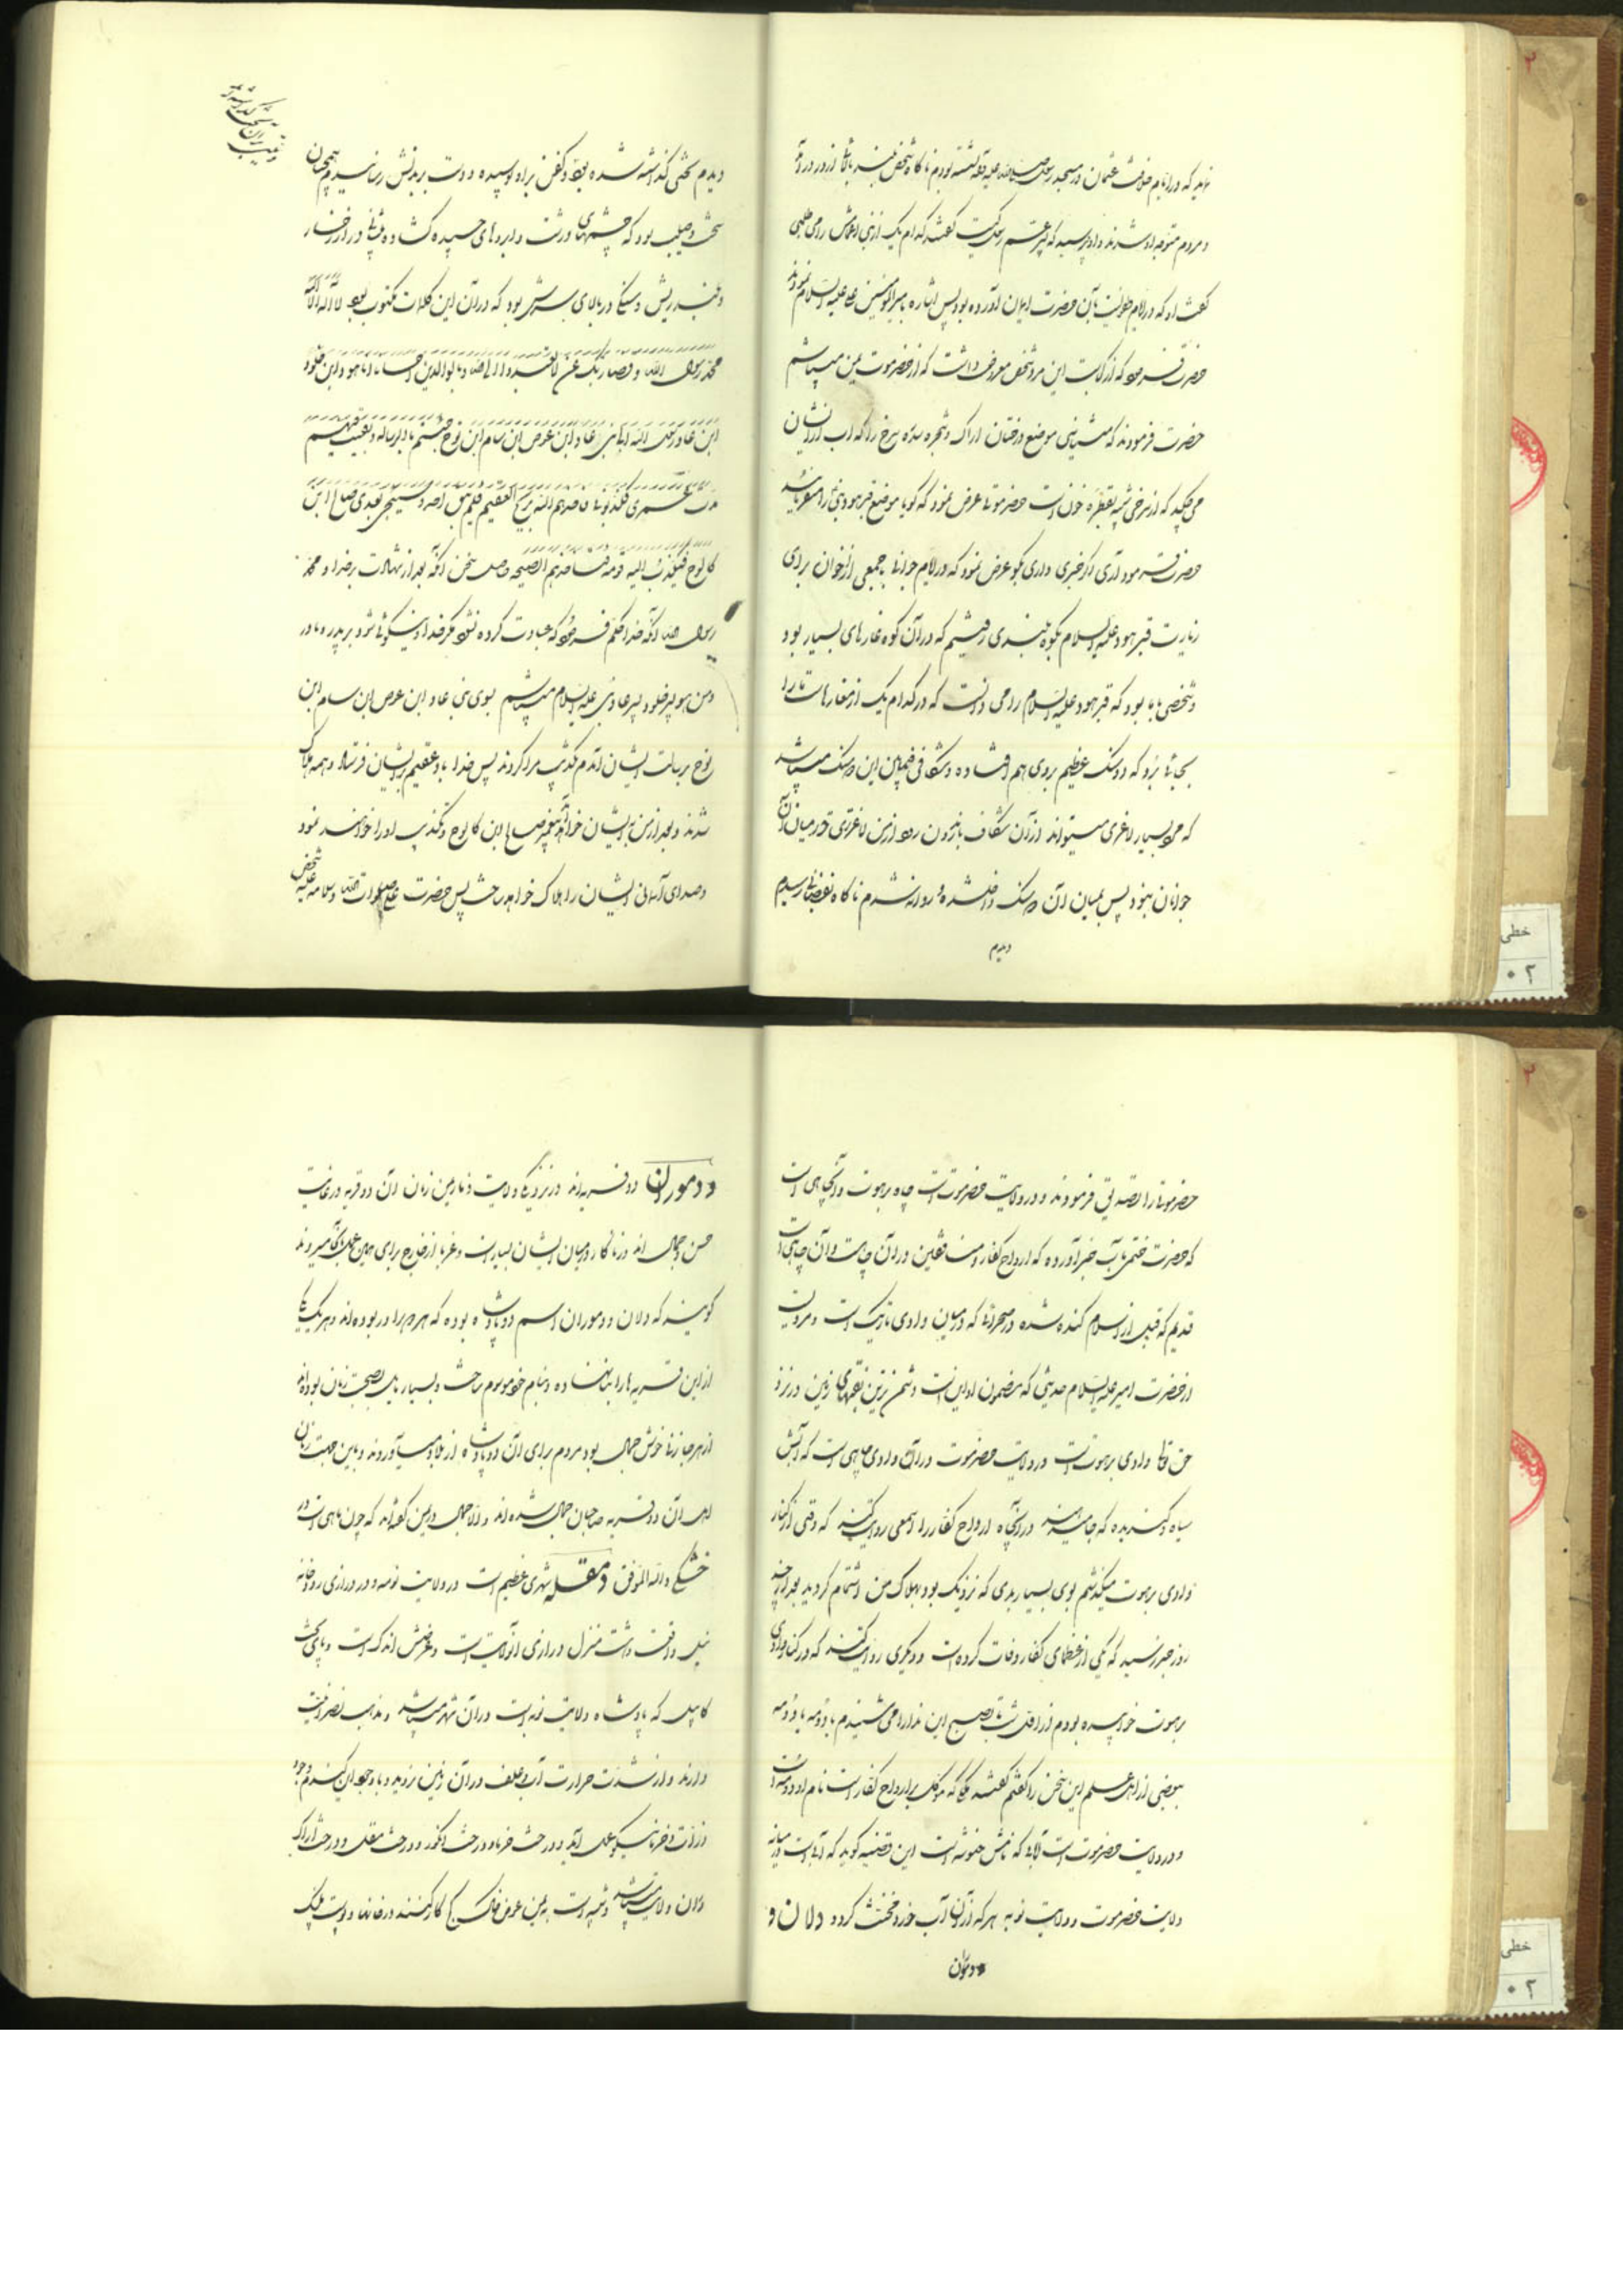 نماید که در ایام خلافت عثمان در مسجد رسول صلی الله علیه و آله نشسته بودم ناگاه شخص بلند بالائی از در درآمد
و مردم متوجه او شدند و او پرسید که پسر عم رسول کیست گفتند کدام یک از بنی اعمامش را می‌طلبی
گفت او که در ایام طفولیت بآن حضرت ایمان آورده بود پس اشاره بامیرالمؤمنین علی علیه السلام نمودند
حضرت فرمود که از کجاست این مرد شخص معروض داشت که از حضرموت یمن میباشم
حضرت فرمودند که میشناسی موضع درختان اراک و شجره سدره سرخ را که آب از ایشان
می‌چکد که از سرخی شبیه بقطره خون است حضرموتی عرض نمود که گویا موضع قبر هود نبی را میفرمائید
حضرت فرمود آری اگر خبری داری بگو عرض نمود که در ایام جوانی با جمعی از اخوان برای
زیارت قبر هود علیه السلام بکوه بلندی رفتیم که در آن کوه غارهای بسیار بود
و شخصی با ما بود که قبر هود علیه السلام را می دانست که در کدام یک از مغارهاست ما را
بجائی برد که دو سنگ عظیم بروی هم افتاده و شکافی فیمابین این دو سنگ میباشد
که مرد بسیار لاغری میتواند از آن شکاف باندرون رود از من لاغرتری در میان آن
جوانان نبود پس بمیان آن دو سنگ داخل شده روانه شدم ناگاه بفضائی رسیدم
دیدم
دیدم تختی گذاشته شده بود و کفن براو پوسیده و دست بر بدنش رسانیدم همچنان
سخت و صلب بود که چشمهای درشت و ابروهای چسبیده گشاده پیشانی دراز رخسار
و بلند ریش و سنگی در بالای سرش بود که در آن این کلمات مکتوب بود لا اله الا الله
محمد رسول الله و قضی ربک الا تعبدوا الا ایاه و بالوالدین احسانا انا هود ابن خلود
ابن عاد رسول الله الی بنی عاد ابن عوص ابن سام ابن نوح جئتهم بالرساله و بقیت فیهم
مدت عمری فکذبونی فاخذهم الله بریح العقیم فلم یبق احد و سیجی بعدی صالح ابن
کالوح فیکذب الیه قومه فتاخذهم الصیحه وصل سخن آنکه بعد از شهادت بر خدا و محمد
رسول خدا آنکه خدا حکم فرمود که عبادت کرده نشود مگر خدا و نیکوئی شود بر پدر و مادر
و من هود پسر خلود پسر عاد نبی علیه السلام میباشم بسوی بنی عاد ابن عوص ابن سام ابن
نوح برسالت ایشان آمدم تکذیب مرا کردند پس خدا باد عقیم بر ایشان فرستاد و همه هلاک
شدند و بعد از من به ایشان خواهد آمد پیغمبر صالح ابن کالوح و تکذیب او را خواهند نمود
و صدای آسمانی ایشان را هلاک خواهد ساخت پس حضرت علی صلوات الله و سلامه علیه شخص
حضرموتی را تصدیق فرمودند و در ولایت حضرموتست چاه برهوت و آن چاهی است
که حضرت ختمی مآب خبر آورده که ارواح کفار و منافقین در آن چاه است و آن چاهی است
قدیم که قبل از اسلام کنده شده در صحرائی که در میان وادی تاریک است و مرویست
از حضرت امیر علیه السلام حدیثی که مضمون او این است دشمن ترین بقعهای زمین در نزد
حق تعالی وادی برهوت است در ولایت حضرموت در آن وادی چاهی است که آبش
سیاه و گندیده که جای میباشد در آن چاه ارواح کفار را اصمعی روایت کند که وقتی از کنار
وادی برهوت میگذشتم بوی بسیار بدی که نزدیک بود بهلاک من استشمام گردید بعد از چند
روز خبر رسید که یکی از عظمای کفار وفات کرده است و دیگری روایت کند که در کنار وادی
برهوت خوابیده بودم از اول شب تا صبح این ندا را می شنیدم یا دومه یا دومه
ببعضی از اهل علم این سخن را گفتم گفتند ملکی که موکل بر ارواح کفار است نام او دومه است
و در ولایت حضرموت است آبی که نامش خنوثه است این قضیه گوید که آبی است در میانه
ولایت حضرموت و ولایت نوبه هر که از آن آب خورد مخنث گردد دلان و
دموران
و دموران دو قریه‌اند در نزدیکی ولایت ذمار یمن زنان آن دو قریه در غایت
حسن و جمال اند و زناکار در میان ایشان بسیار است و غربا از خارج برای همین عمل بآنجا میروند
گویند که دلان و دموران اسم دو پادشاه بوده که هر دو برادر بوده‌اند و هر یک یکی
از این قریه‌ها را بنا نهاده و بنام خود موسوم ساخت و بسیار مایل بصحبت زنان بوده‌اند
از هر جا زنی خوش جمال بود مردم برای آن دو پادشاه از بلاد میآوردند و باین جهت زنان
اهل آن دو قریه صاحبان جمال شده‌اند و الا جمال در یمن گفته‌اند که چون ماهی است در
خشکی والله الموفق دمقله شهری عظیم است در ولایت نوبه و در درازی رودخانه
نیل واقعست هشتاد منزل درازی آنولایت است و عرضش اندک است و پای تخت
کابیل که پادشاه ولایت نوبه است در آن شهر میباشد و مذهب نصرانیت
دارند و از شدت حرارت آب و علف در آن زمین نروید و با وجود آن گندم و جو
و ذرت و خرما نیکو بعمل آید و درخت خرما و درخت انگور و درخت مقل و درخت اراک
در آن ولایت میباشد